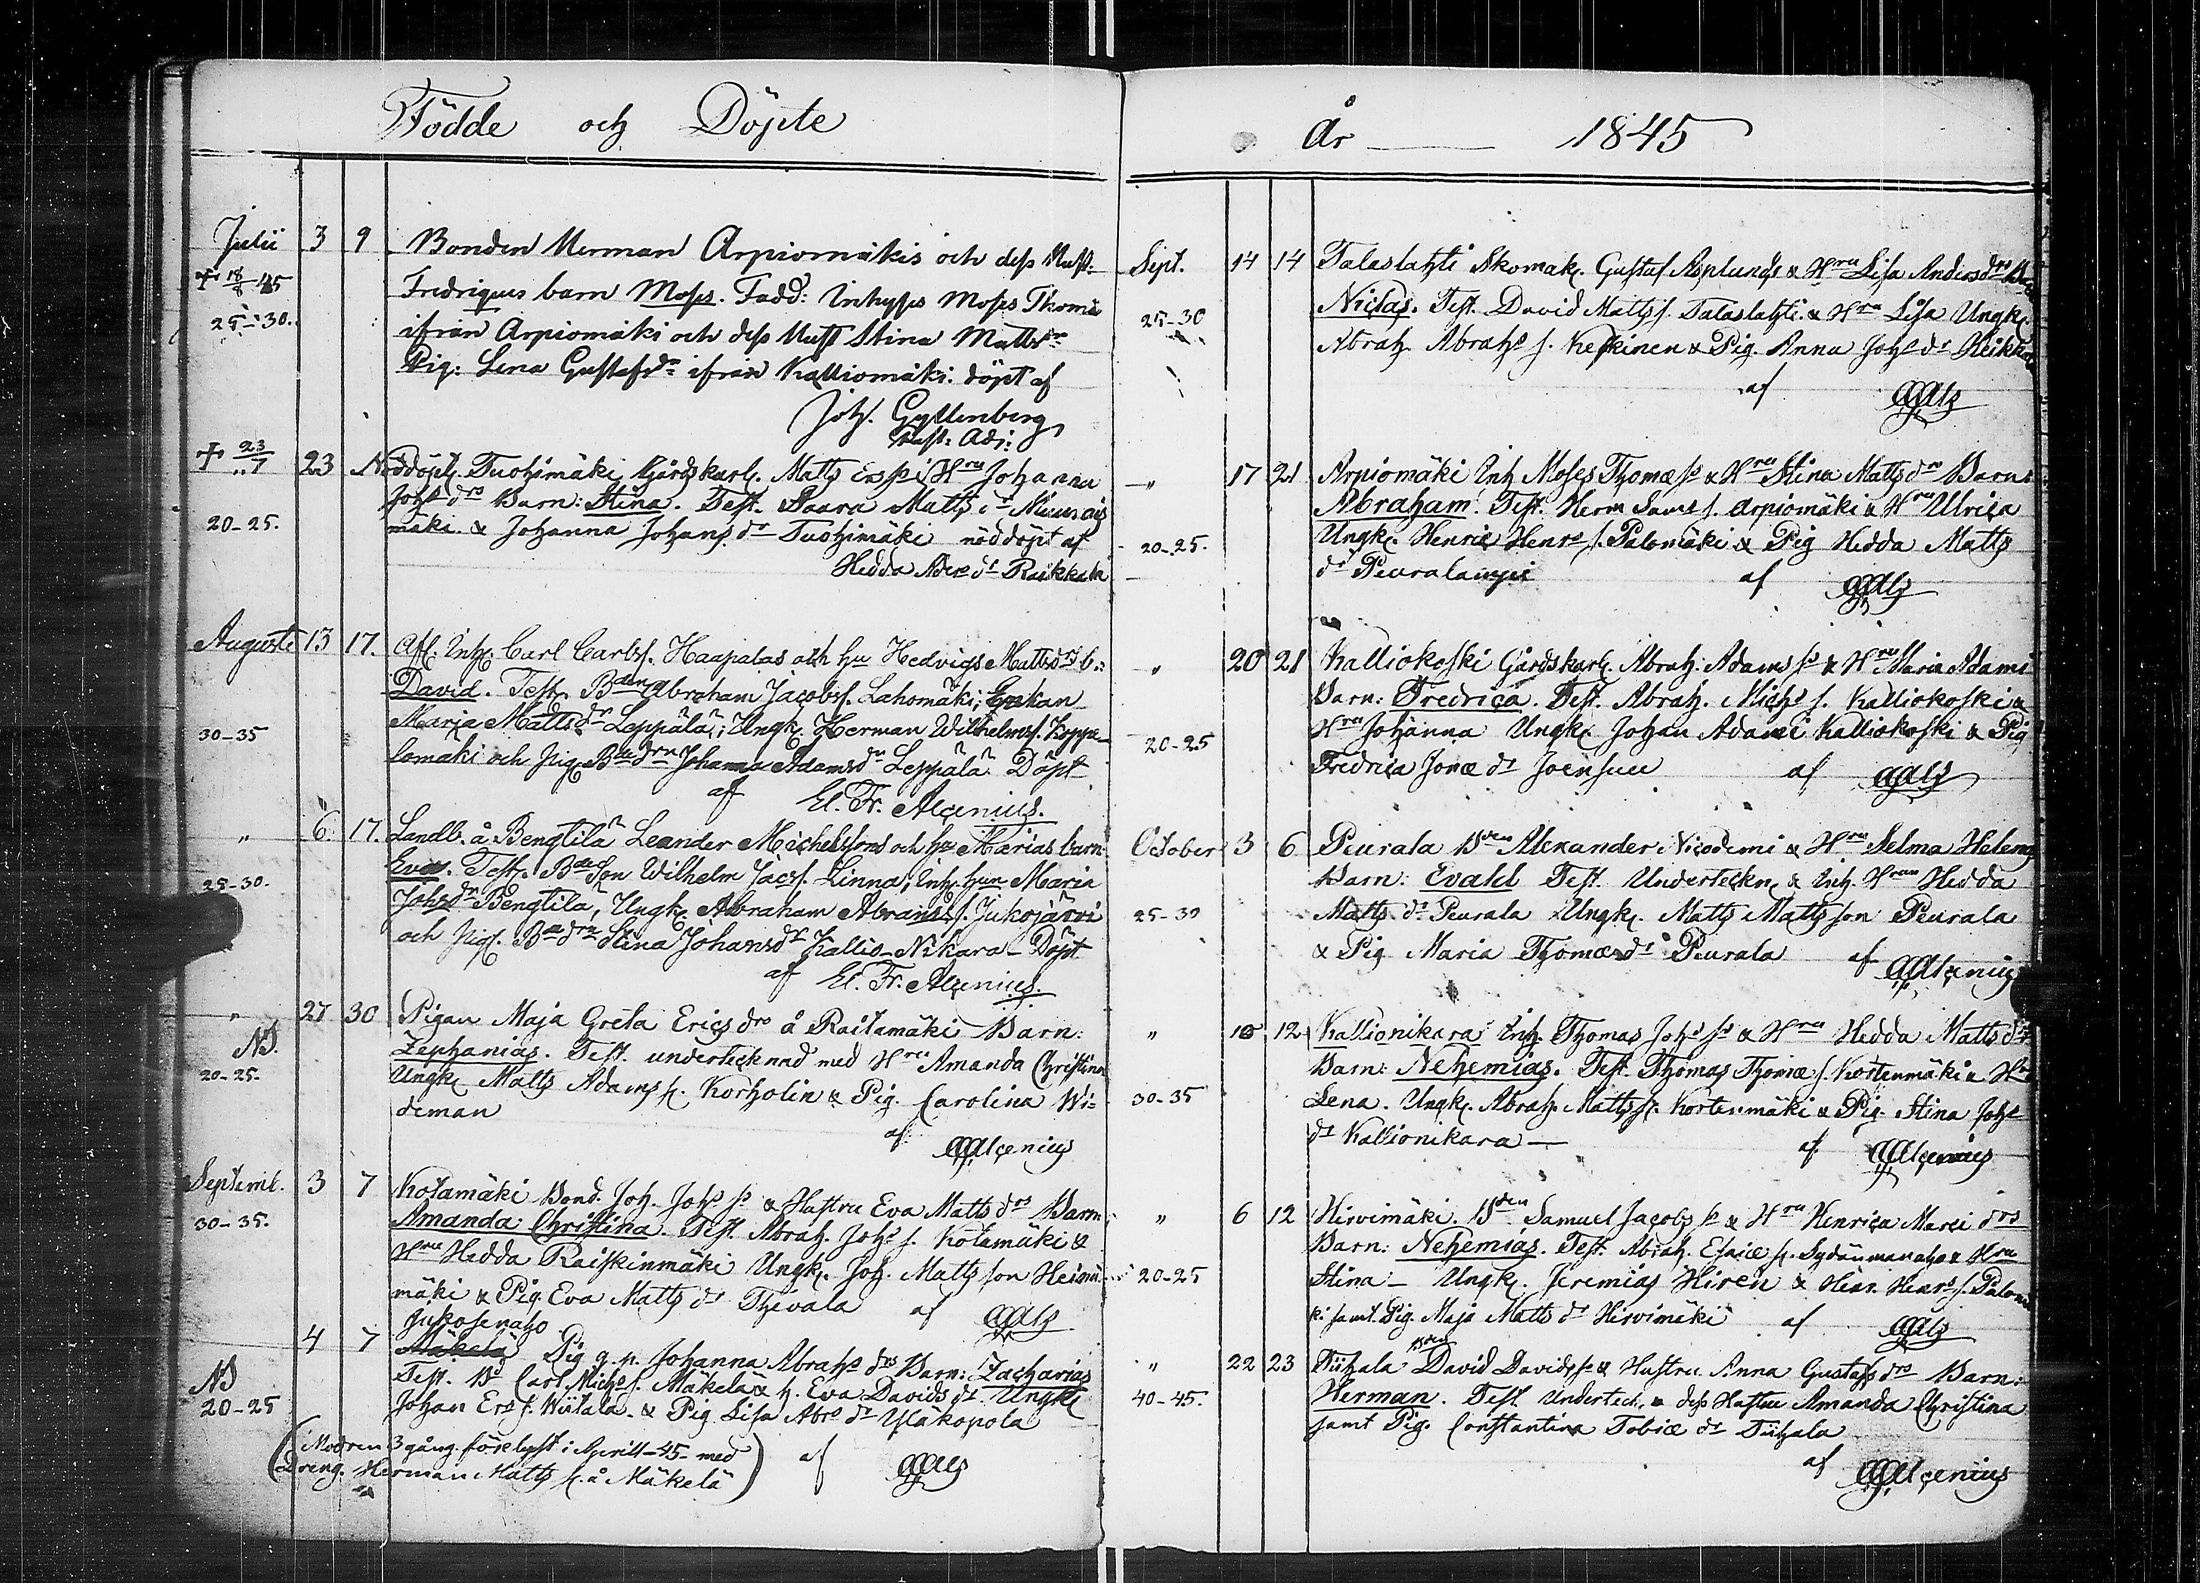 Födde och Döpte
Julii 3 9 Bonden Herman Arpiomäkis och dess Hust.
+ 18/8 45 Fredriques barn Moses. Fadd: Inhyses Moses Thomæ
25-30. ifrån Arpiomäki och dess Hust Stina Mattsdr
Pig: Lena Gustafsdr ifrån Kalliomäki. döpt af
Joh. Gyllenberg
Past: Adj:
+ 23/7 23 Nöddöpt. Tuohimäki Gårdskarl. Matts Ers sr Hru Johanna
Johs drs Barn: Stina. Test. Saara Matts dr Niinais
20-25. mäki & Johanna Johans dr Tuohimäki nöddöpt af
Hedda Aders dr Raikkala
Augusti 13 17. Afl. Inh. Carl Carlss. Haapalas och Hu Hedvigs Mattsdrs b.:
David. Test. Bden Abraham Jacobss. Lahomäki; Enkan
Marja Matts dr Leppälä; Ungk. Herman Wilhelmss. Koppe-
30-35 lomäki och Pig. Bde drn Johanna Adamsdr Leppälä Döpt
af El. Fr. Alcenius.
" 6. 17. Landb. å Bengtilä Leander Michelssons och Hu Marias barn
Eva. Test. Bde Son Wilhelm Jacs. Linna; Inh. hun Maria
25-30. Johsdr Bengtilä, Ungk. Abraham Abrams s. Jukojärvi
och Pig. Bde drn Stina Johansdr Kallio-Nikara - Döpt
af El. Fr. Alcenius.
" 27 30 Pigan Maja Greta Erics drs å Raitamäki Barn:
NB. Zephanias. Test. undertecknad med Hru Amanda Christina
20-25. Ungk. Matts Adams s. Korholin & Pig. Carolina Wi-
deman
af Alcenius
Septemb. 3 7 Kotamäki Bond. Joh. Johs sr & Hustru Eva Matts drs Barn
30-35. Amanda Christina. Test. Abrah. Johs s. Kotamäki &
Hru Hedda Raiskinmäki Ungk. Joh. Matts son Heinä-
mäki & Pig. Eva Matts dr Thivala af
Jukosenaho
4 7 Mäkelä Pig q.p. Johanna Abrahs drs Barn: Zacharias
NB Test. Bd Carl Michs s. Mäkelä & h. Eva Davids dr Ungk
20-25 Johan Ers s. Wiitala & Pig. Lisa Abrs dr Ylakopola
(Modren 3 gång. förelyst i April -45- med
Dreng. Herman Matts s. å Mäkelä) af
År 1845
Sept. 14 14 Talaslahti Skomak. Gustaf Asplunds & Hru Lisa Andersdrs
Niclas. Test. David Matts s. Talaslahti & Hru Lisa Ungk.
25-30 Abrah. Abrahs s. Keskinen & Pig. Anna Johs dr Heikk
af
" 17 21 Arpiomäki Inh Moses Thomæ sr & Hru Stina Matts drs Barn:
Abraham. Test. Herm Sams s. Arpiomäki & Hru Ulrica
20-25. Ungk. Henric Henrs s. Palomäki & Pig Hedda Matts
dr Peuralampi af
" 20 21 Kalliokoski Gårdskarl. Abrah. Adams sr & Hru Maria Adams
Barn: Fredrica. Test. Abrah. Michs s. Kalliokoski &
Hru Johanna Ungk. Johan Adami Kalliokoski & Pig
20-25 Fredrica Jonæ dr Joensuu af
October 3 6 Peurala Bden Alexander Nicodemi & Hru Selma Helena
Barn: Evald Test. Underteckn. & Inh. Hrun Hedda
25-30 Matts dr Peurala Ungk. Matts Matts son Peurala
& Pig Maria Thomæ dr Peurala af Alcenius
" 10 12 Kallionikara Inh. Thomas Johs sr & Hru Hedda Matts drs
Barn: Nehemias. Test. Thomas Thomæ s. Kortenmäki & Hru
30-35 Lena. Ungk. Abrah. Matts s. Kortenmäki & Pig. Stina Johs
dr Kallionikara - af Alcenius
" 6 12 Hirvimäki. Bden Samuel Jacobs sr & Hru Henrica Marci drs
Barn: Nehemias. Test. Abrah. Esaiæ s. Sydänmanaho & Hru
20-25 Stina - Ungk. Jeremias Hiren & Henr. Henrs s. Palomä
ki samt Pig. Maja Matts dr Hirvimäki af
" 22 23 Tiihala Bden David Davids sr & Hustru Anna Gustafs drs Barn:
40-45. Herman. Test. Underteck. & dess Hustru Amanda Christina
samt Pig. Constantina Tobiæ dr Tiihala
af Alcenius